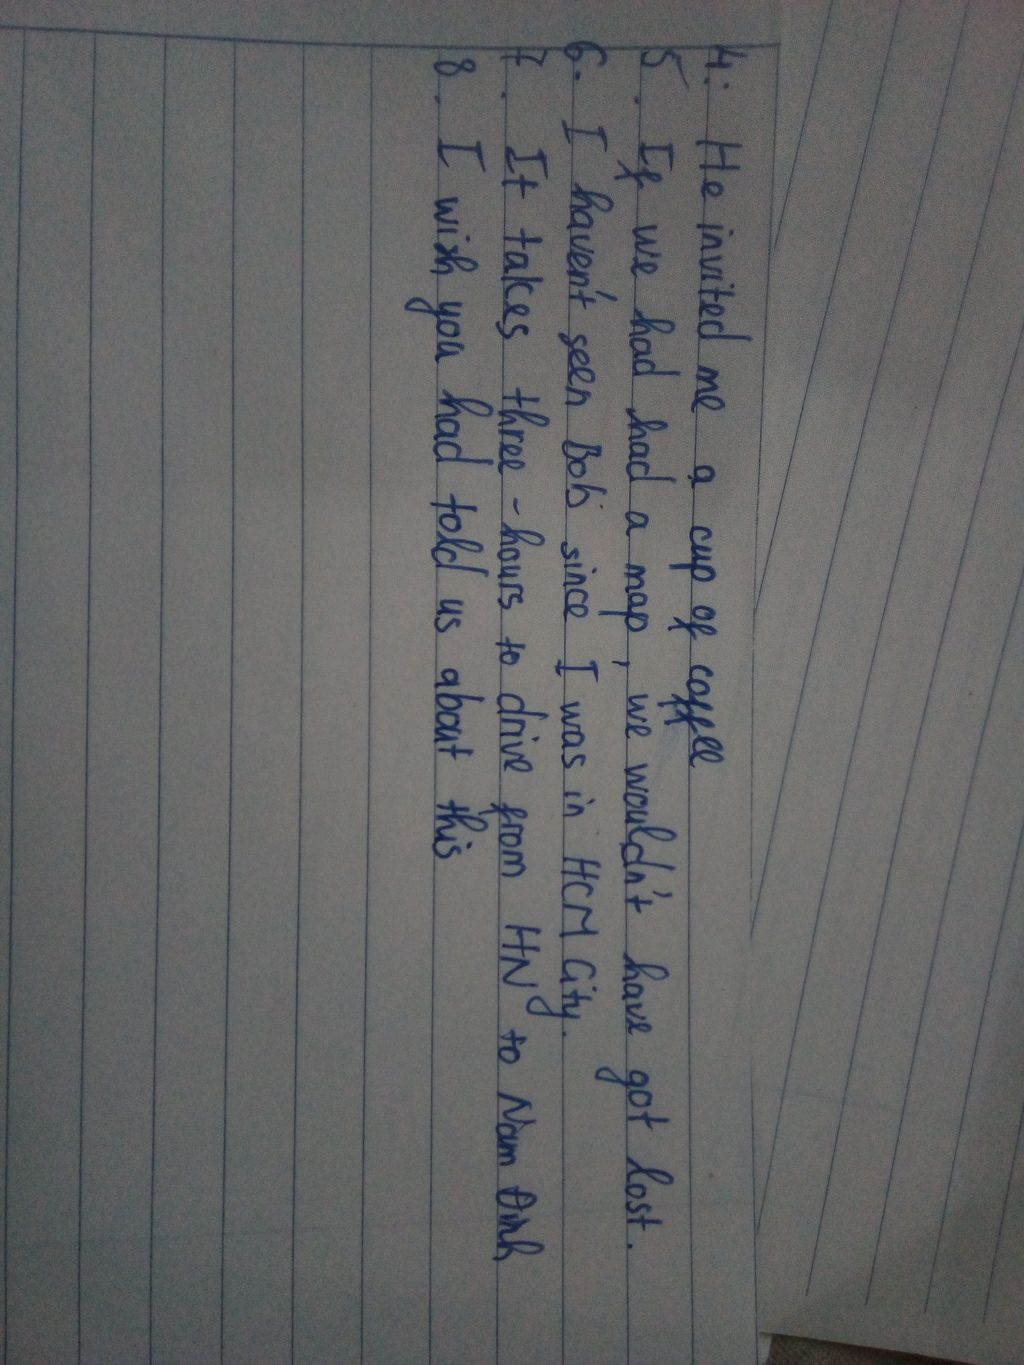 4. He invited me a cup of coffee
5. If we had had a map, we wouldn't have got lost.
6. I haven't seen Bob since I was in HCM City.
7. It takes three - hours to drive from HN to Nam Định
8. I wish you had told us about this